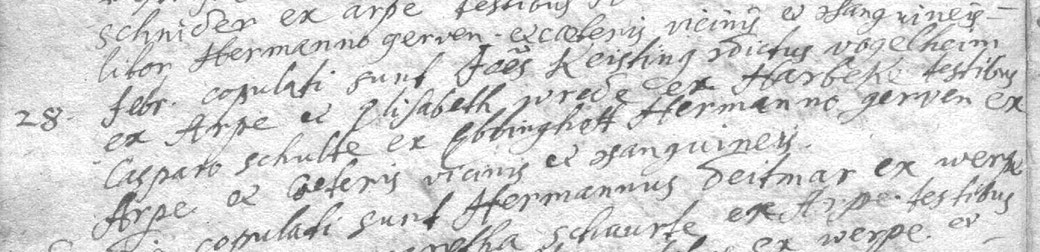 schnider ex arpe testibus
litor Hermanno gerven - et cæteris vicinis et 9sanguineis -
28. febr. copulati sunt Joēs Keisting dictus vogelheim
ex Arpe et Elisabeth wrede ex Harbeke testibus
Casparo schulte ex Ebbinghoff Hermanno gerven ex
Arpe. et cæteris vicinis et 9sanguineis.
copulati sunt Hermannus deitmar ex werpe
schaurte ex Arpe. testibus
ex werpe. et